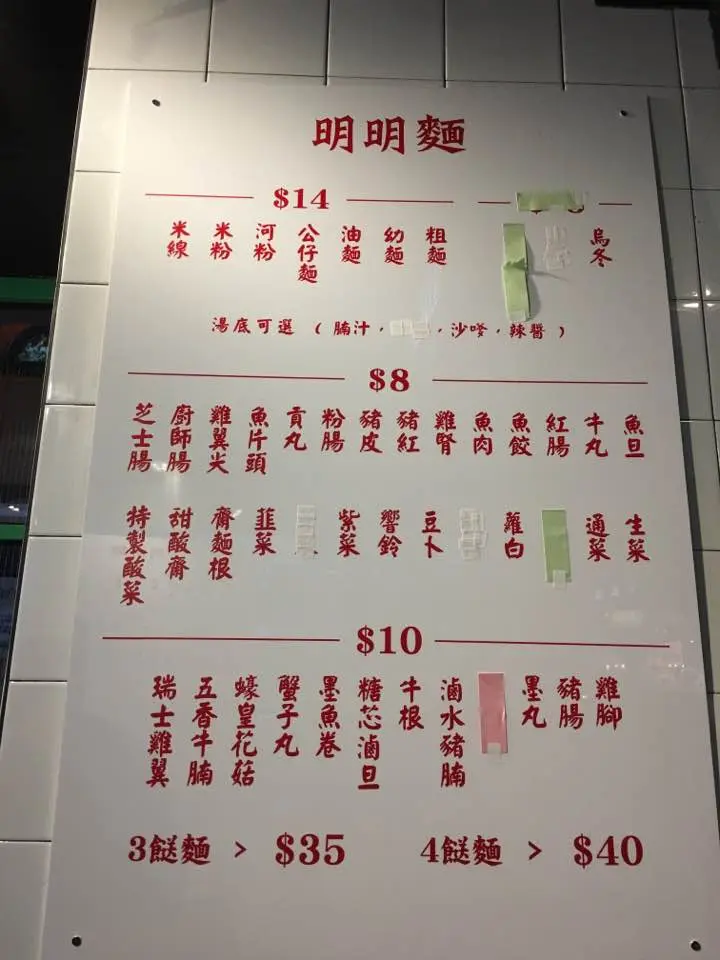 明明麵
$14
烏冬
粗麵
幼麵
油麵
公仔麵
河粉
米粉
米線
湯底可選 （ 腩汁，，沙嗲，辣醬 ）
$8
魚旦
牛丸
紅腸
魚餃
魚肉
雞腎
豬紅
豬皮
粉腸
貢丸
魚片頭
雞翼尖
廚師腸
芝士腸
生菜
通菜
蘿白
豆卜
響鈴
紫菜
韮菜
齋麵根
甜酸齋
特製酸菜
$10
雞腳
豬腸
墨丸
滷水豬腩
牛根
糖芯滷旦
墨魚卷
蟹子丸
蠔皇花菇
五香牛腩
瑞士雞翼
3餸麵 > $35
4餸麵 > $40